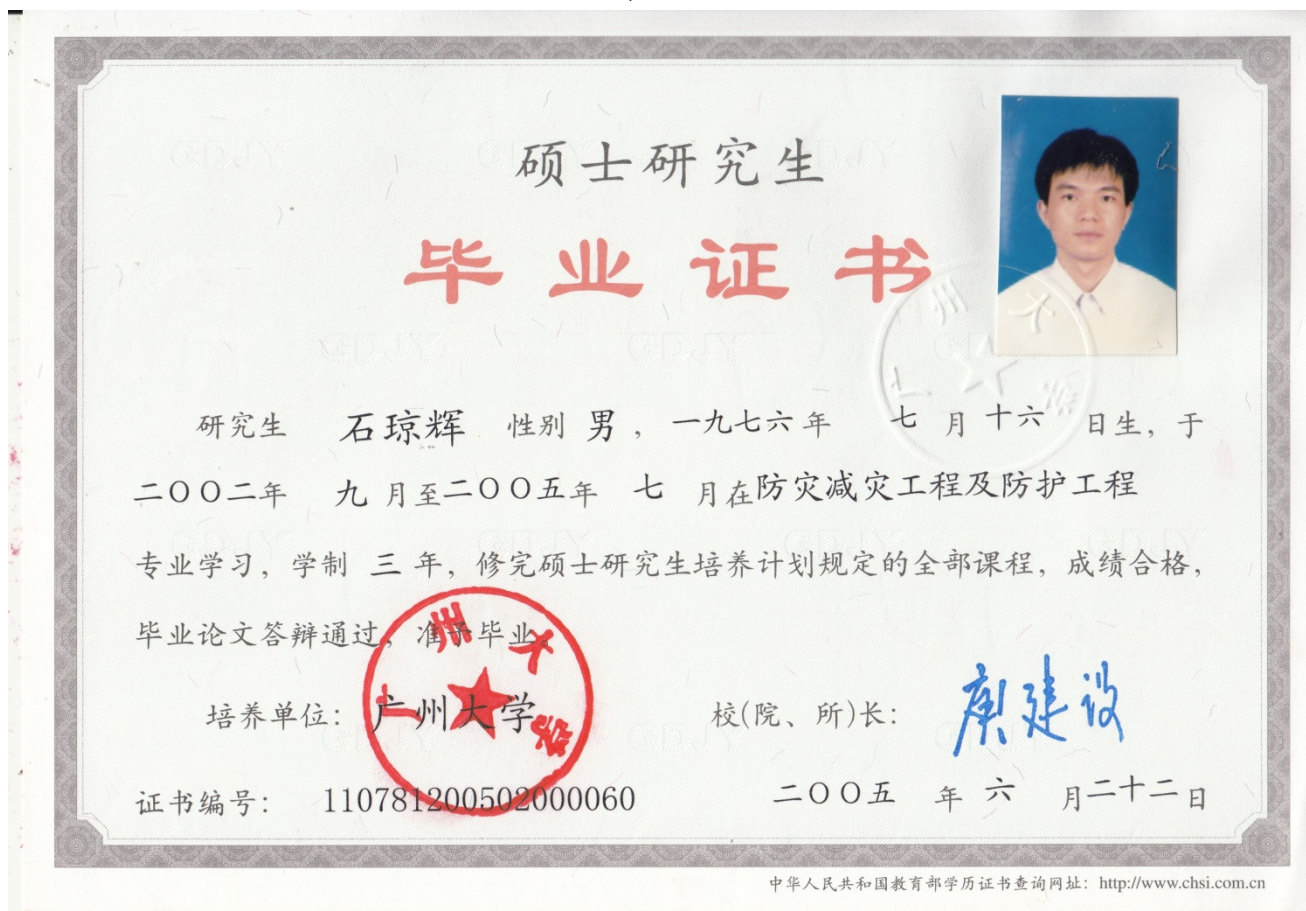 硕士研究生
毕业证书
研究生 石琼辉 性别 男，一九七六年 七 月 十六 日生，于
二〇〇二年 九 月至二〇〇五年 七 月在防灾减灾工程及防护工程
专业学习，学制 三 年，修完硕士研究生培养计划规定的全部课程，成绩合格，
毕业论文答辩通过，准予毕业。
培养单位：广州大学 校(院、所)长：庾建设
广州大学
广州大学
证书编号： 110781200502000060 二〇〇五 年 六 月二十二日
中华人民共和国教育部学历证书查询网址：http://www.chsi.com.cn